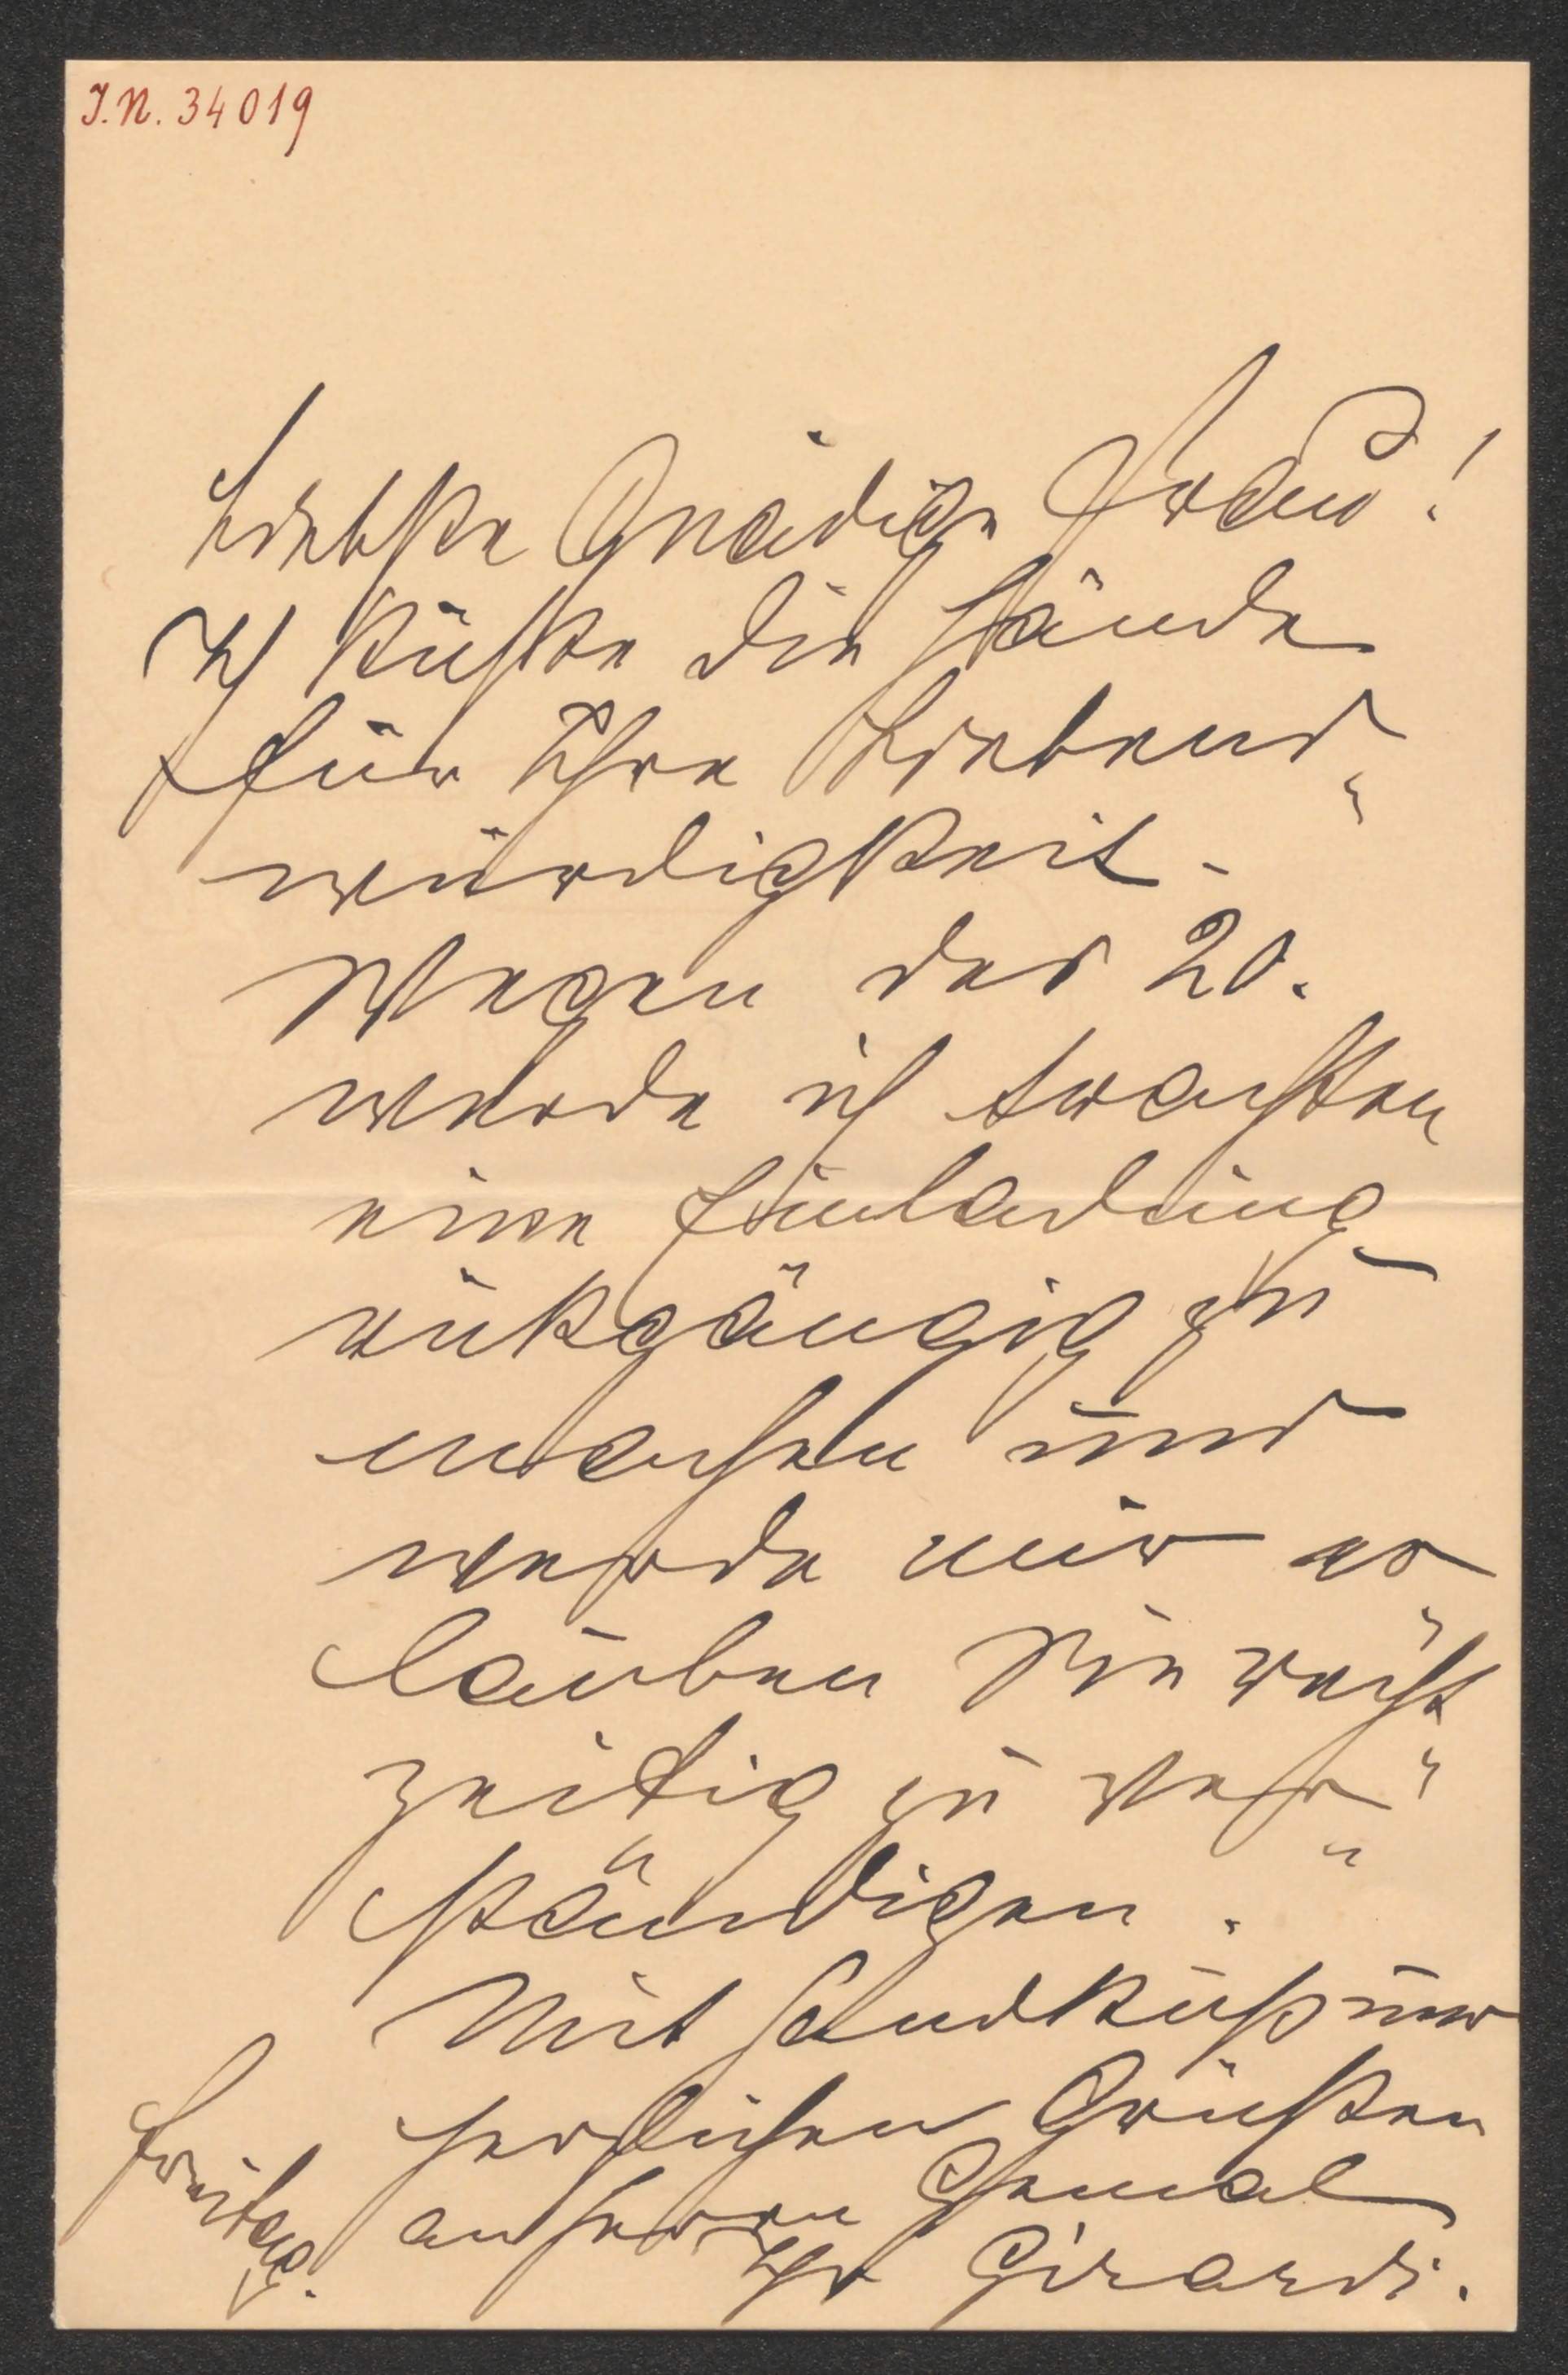 J.N. 34019
Liebste Gnädige Frau!
Ich küsse die Hände
für Ihre Liebens-
würdigkeit.
Wegen des 20.
werde ich trachten
eine Einladung
rükgängig zu
machen und
werde mir er-
lauben Sie recht-
zeitig zu ver-
ständigen.
Mit Handkuß und
herzlichen Grüßen
an Herrn Gemal
Ihr Girardi.
Freitag.